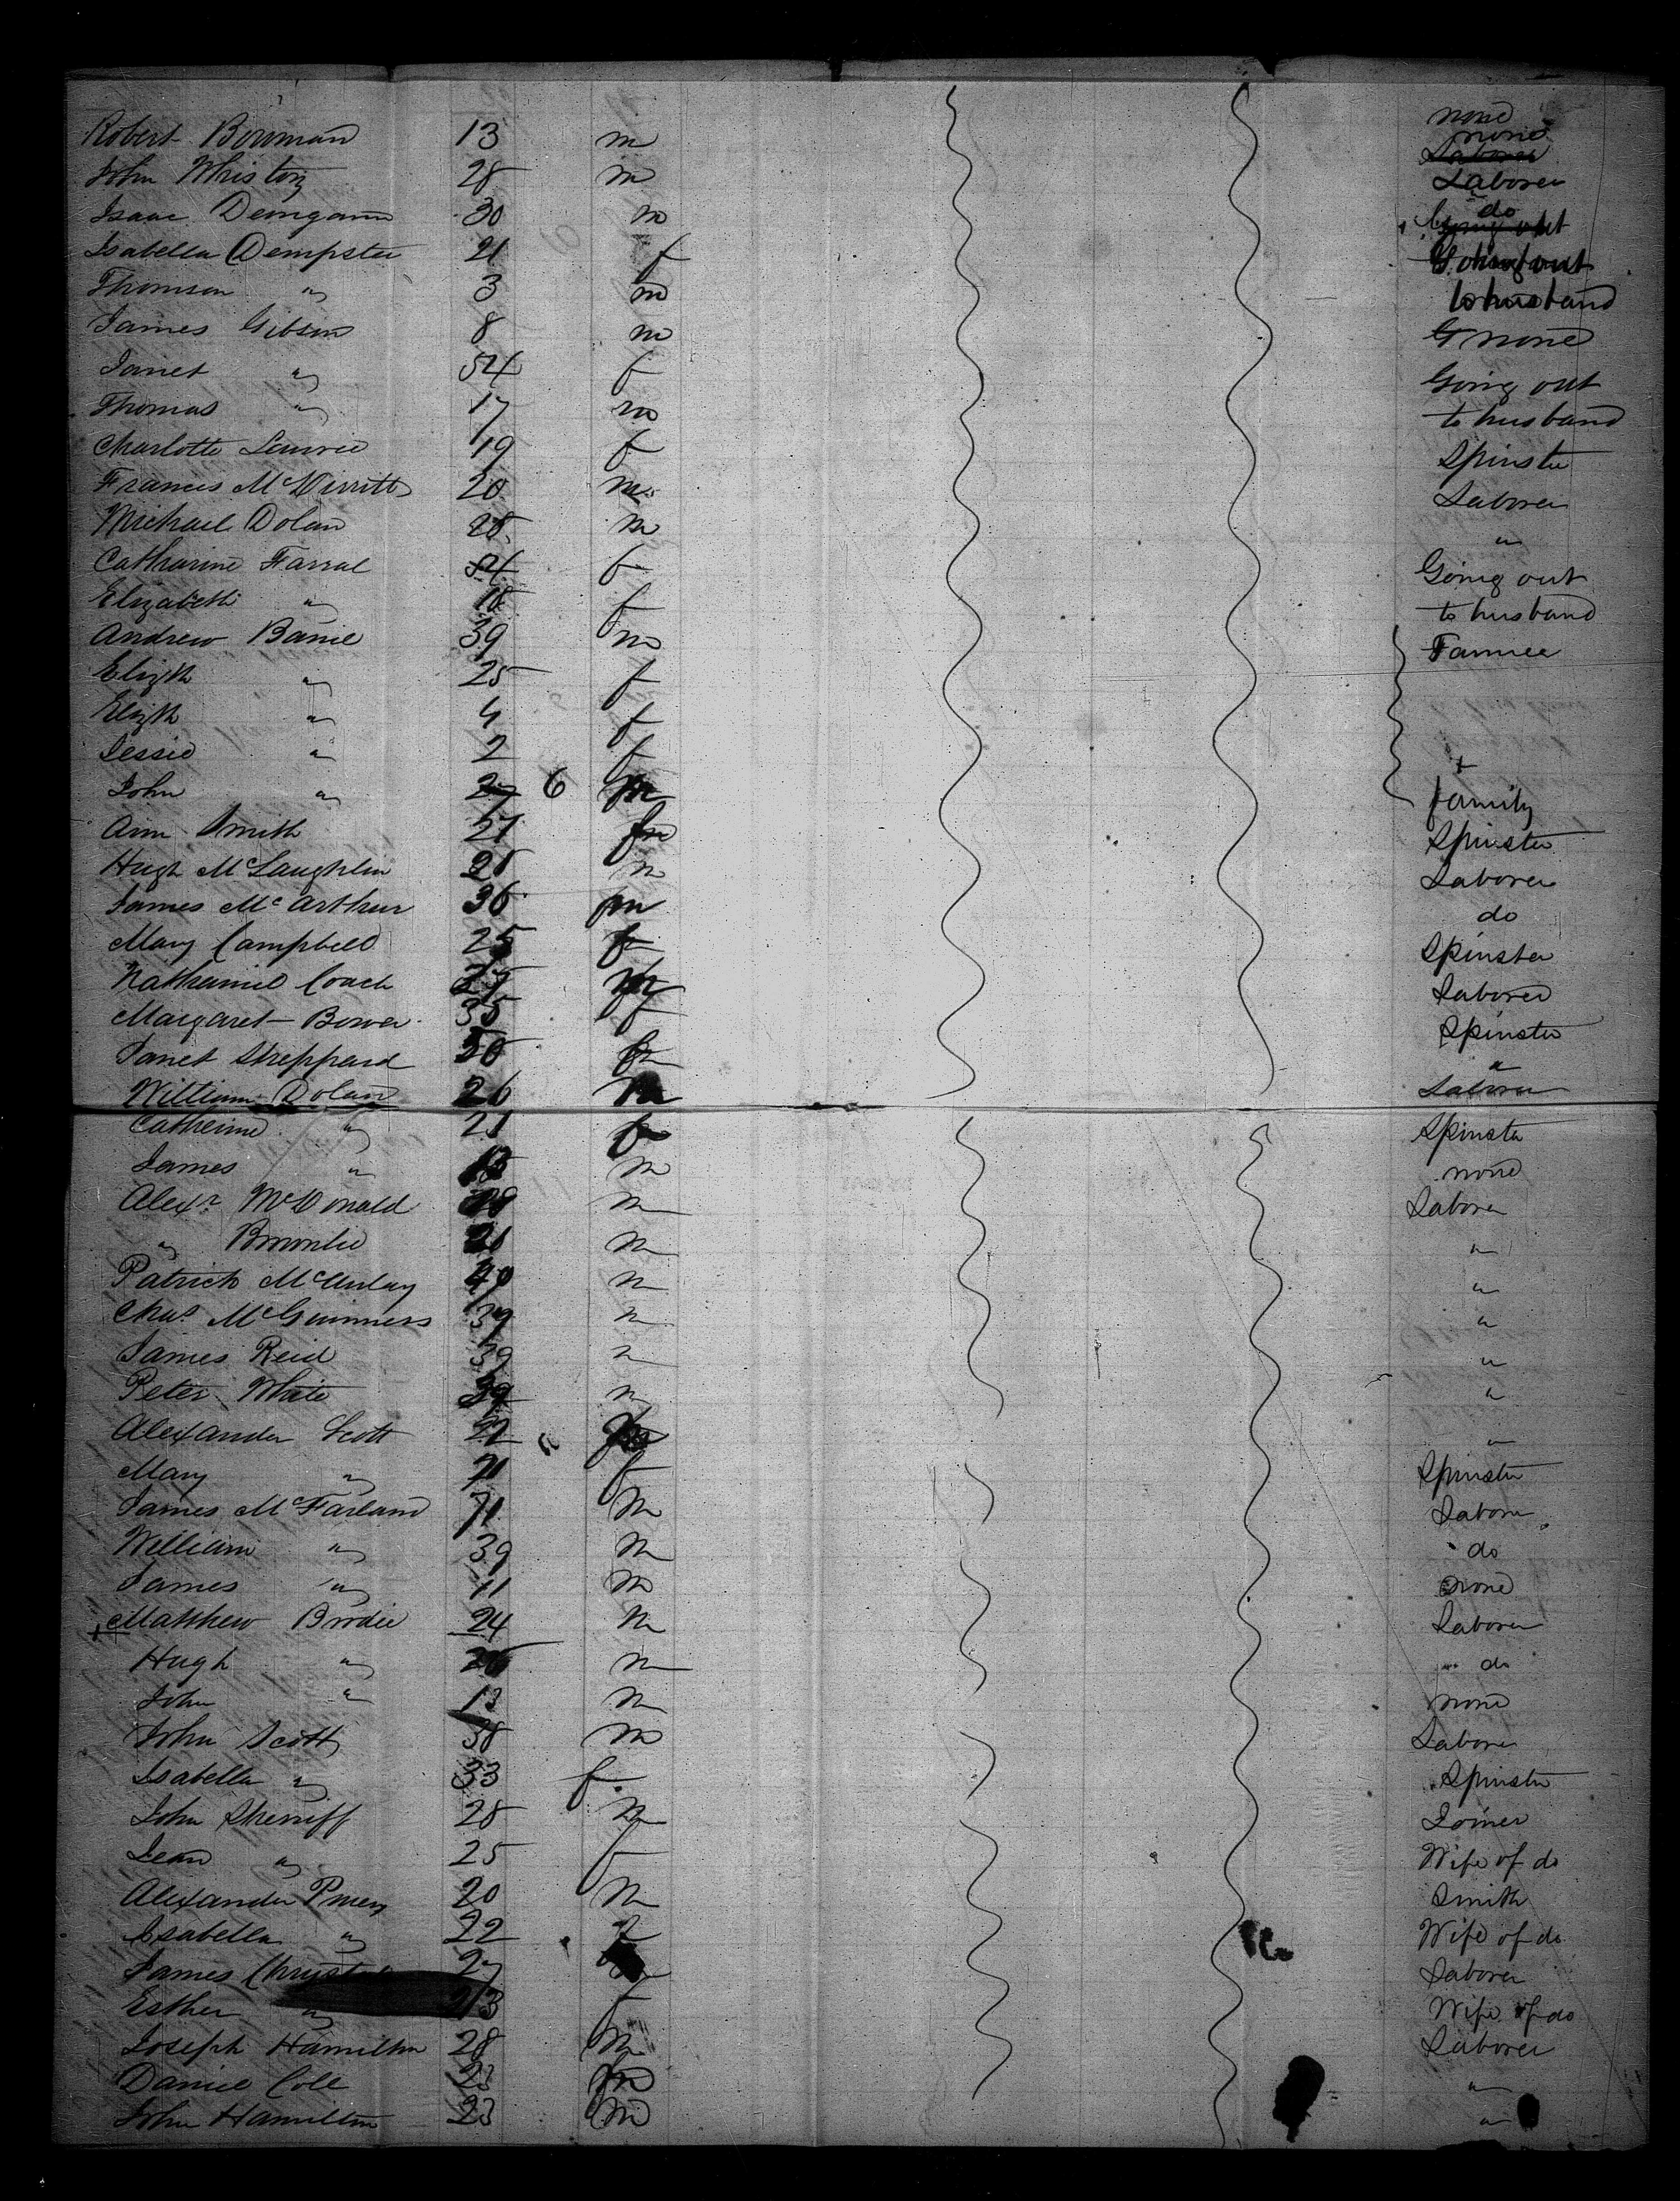 none
Robert Bowman 13 m none
Laborer
John Whiston 28 m Laborer
Isaac 30 m do
Going out
Isabella Dempster 21 f Going out
Thomson " 3 m to husband
James Gibson 8 m none
Janet " 54 f Going out
Thomas " 17 m to husband
Charlotte Lawrie 19 f Spinster
Francis 20 m Laborer
Michael Dolan 28 m "
Catharine Farral 54 f Going out
Elizabeth " 18 f to husband
Andrew 39 m Farmer
Elizth " 25 f
Elizth " 4 f
Jessie " 2 f +
John " 27 6 m family
Ann Smith 21 f Spinster
Hugh McLaughlin 28 m Laborer
James McArthur 36 m do
Mary Campbell 25 f Spinster
Nathaniel Coach m Laborer
Margaret Bower 35 f Spinster
Janet Sheppard 50 f "
William Dolan 26 m Laborer
Catherine " 21 f Spinster
James " 13 m none
Alexr McDonald m Laborer
" Brownlie 21 m "
Patrick McAulay 40 m "
Chas McGuinness 39 m "
James Reid 39 m "
Peter White 39 m "
Alexander Scott 22 m "
Mary " 71 f Spinster
James McFarland 71 m Laborer
William " 39 m do
James " 11 m none
Matthew Brodie 24 m Laborer
Hugh " 26 m do
John " 13 m none
John Scott 38 m Laborer
Isabella " 33 f Spinster
John Sherriff 28 m Joiner
Jean " 25 f Wife of do
Alexander 20 m Smith
Isabella " 22 f Wife of do
James 27 Laborer
Esther " 23 f Wife of do
Joseph Hamilton 28 m Laborer
Daniel Cole 23 m "
John Hamilton 23 m "